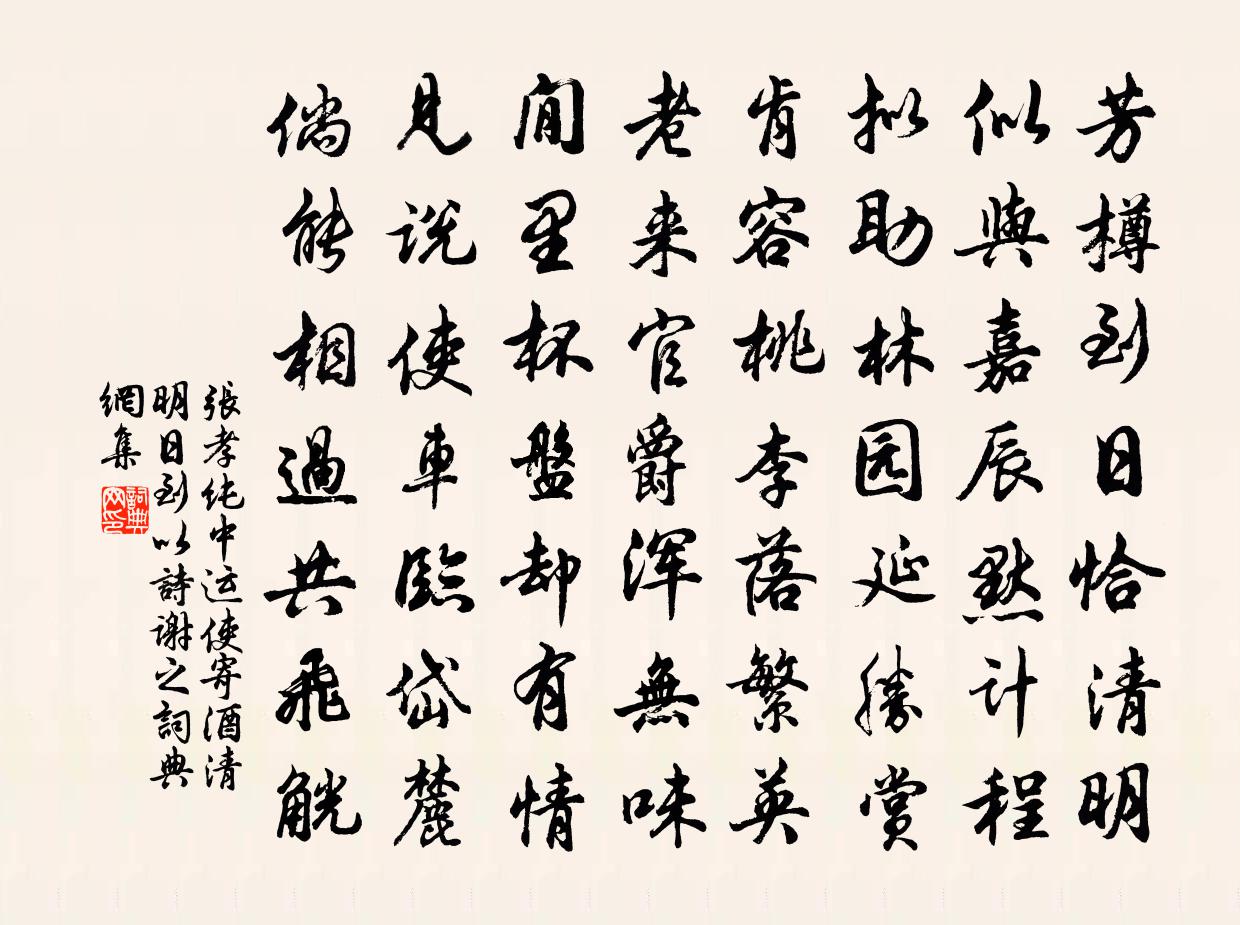 芳樽到日恰清明
似與嘉辰默计程
拟助林园延勝赏
肯容桃李落繁英
老来官爵浑無味
閒里杯盤却有情
見说使車臨岱麓
倘能相過共飛觥
張孝纯中运使寄酒清
明日到以詩谢之詞典
網集
詞典网印